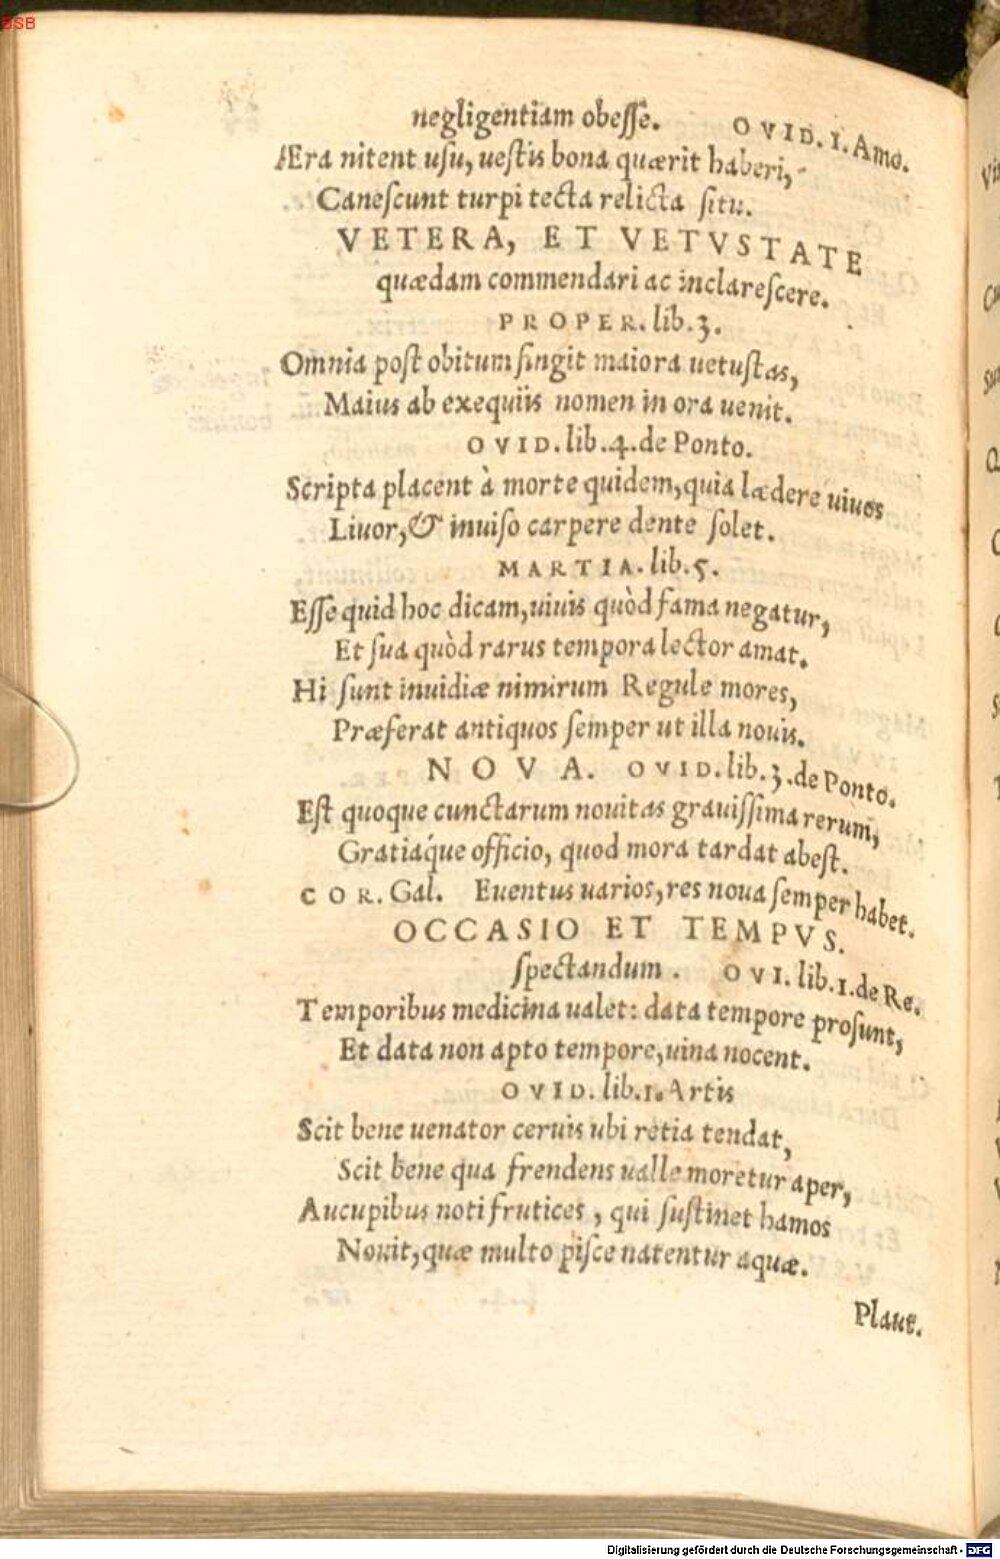 BSB
negligentiam obesse. OVID. 1. Amo.
Æra nitent usu, uestis bona quærit haberi,
Canescunt turpi tecta relicta situ.
VETERA, ET VETVSTATE
quædam commendari ac inclarescere.
PROPER. lib. 3.
Omnia post obitum fingit maiora uetustas,
Maius ab exequiis nomen in ora uenit.
OVID. lib. 4. de Ponto.
Scripta placent à morte quidem, quia lædere uiuos
Liuor, & inuiso carpere dente solet.
MARTIA. lib. 5.
Esse quid hoc dicam, uiuis quòd fama negatur,
Et sua quòd rarus tempora lector amat.
Hi sunt inuidiæ nimirum Regule mores,
Præferat antiquos semper ut illa nouis.
NOVA. OVID. lib. 3. de Ponto.
Est quoque cunctarum nouitas grauissima rerum,
Gratiáque officio, quod mora tardat abest.
COR. Gal. Euentus uarios, res noua semper habet.
OCCASIO ET TEMPVS.
spectandum. OVI. lib. 1. de Re.
Temporibus medicina ualet: data tempore prosunt,
Et data non apto tempore, uina nocent.
OVID. lib. 1. Artis
Scit bene uenator ceruis ubi retia tendat,
Scit bene qua frendens ualle moretur aper,
Aucupibus noti frutices, qui sustinet hamos
Nouit, quæ multo pisce natentur aquæ.
Plaut.
Digitalisierung gefördert durch die Deutsche Forschungsgemeinschaft - DFG